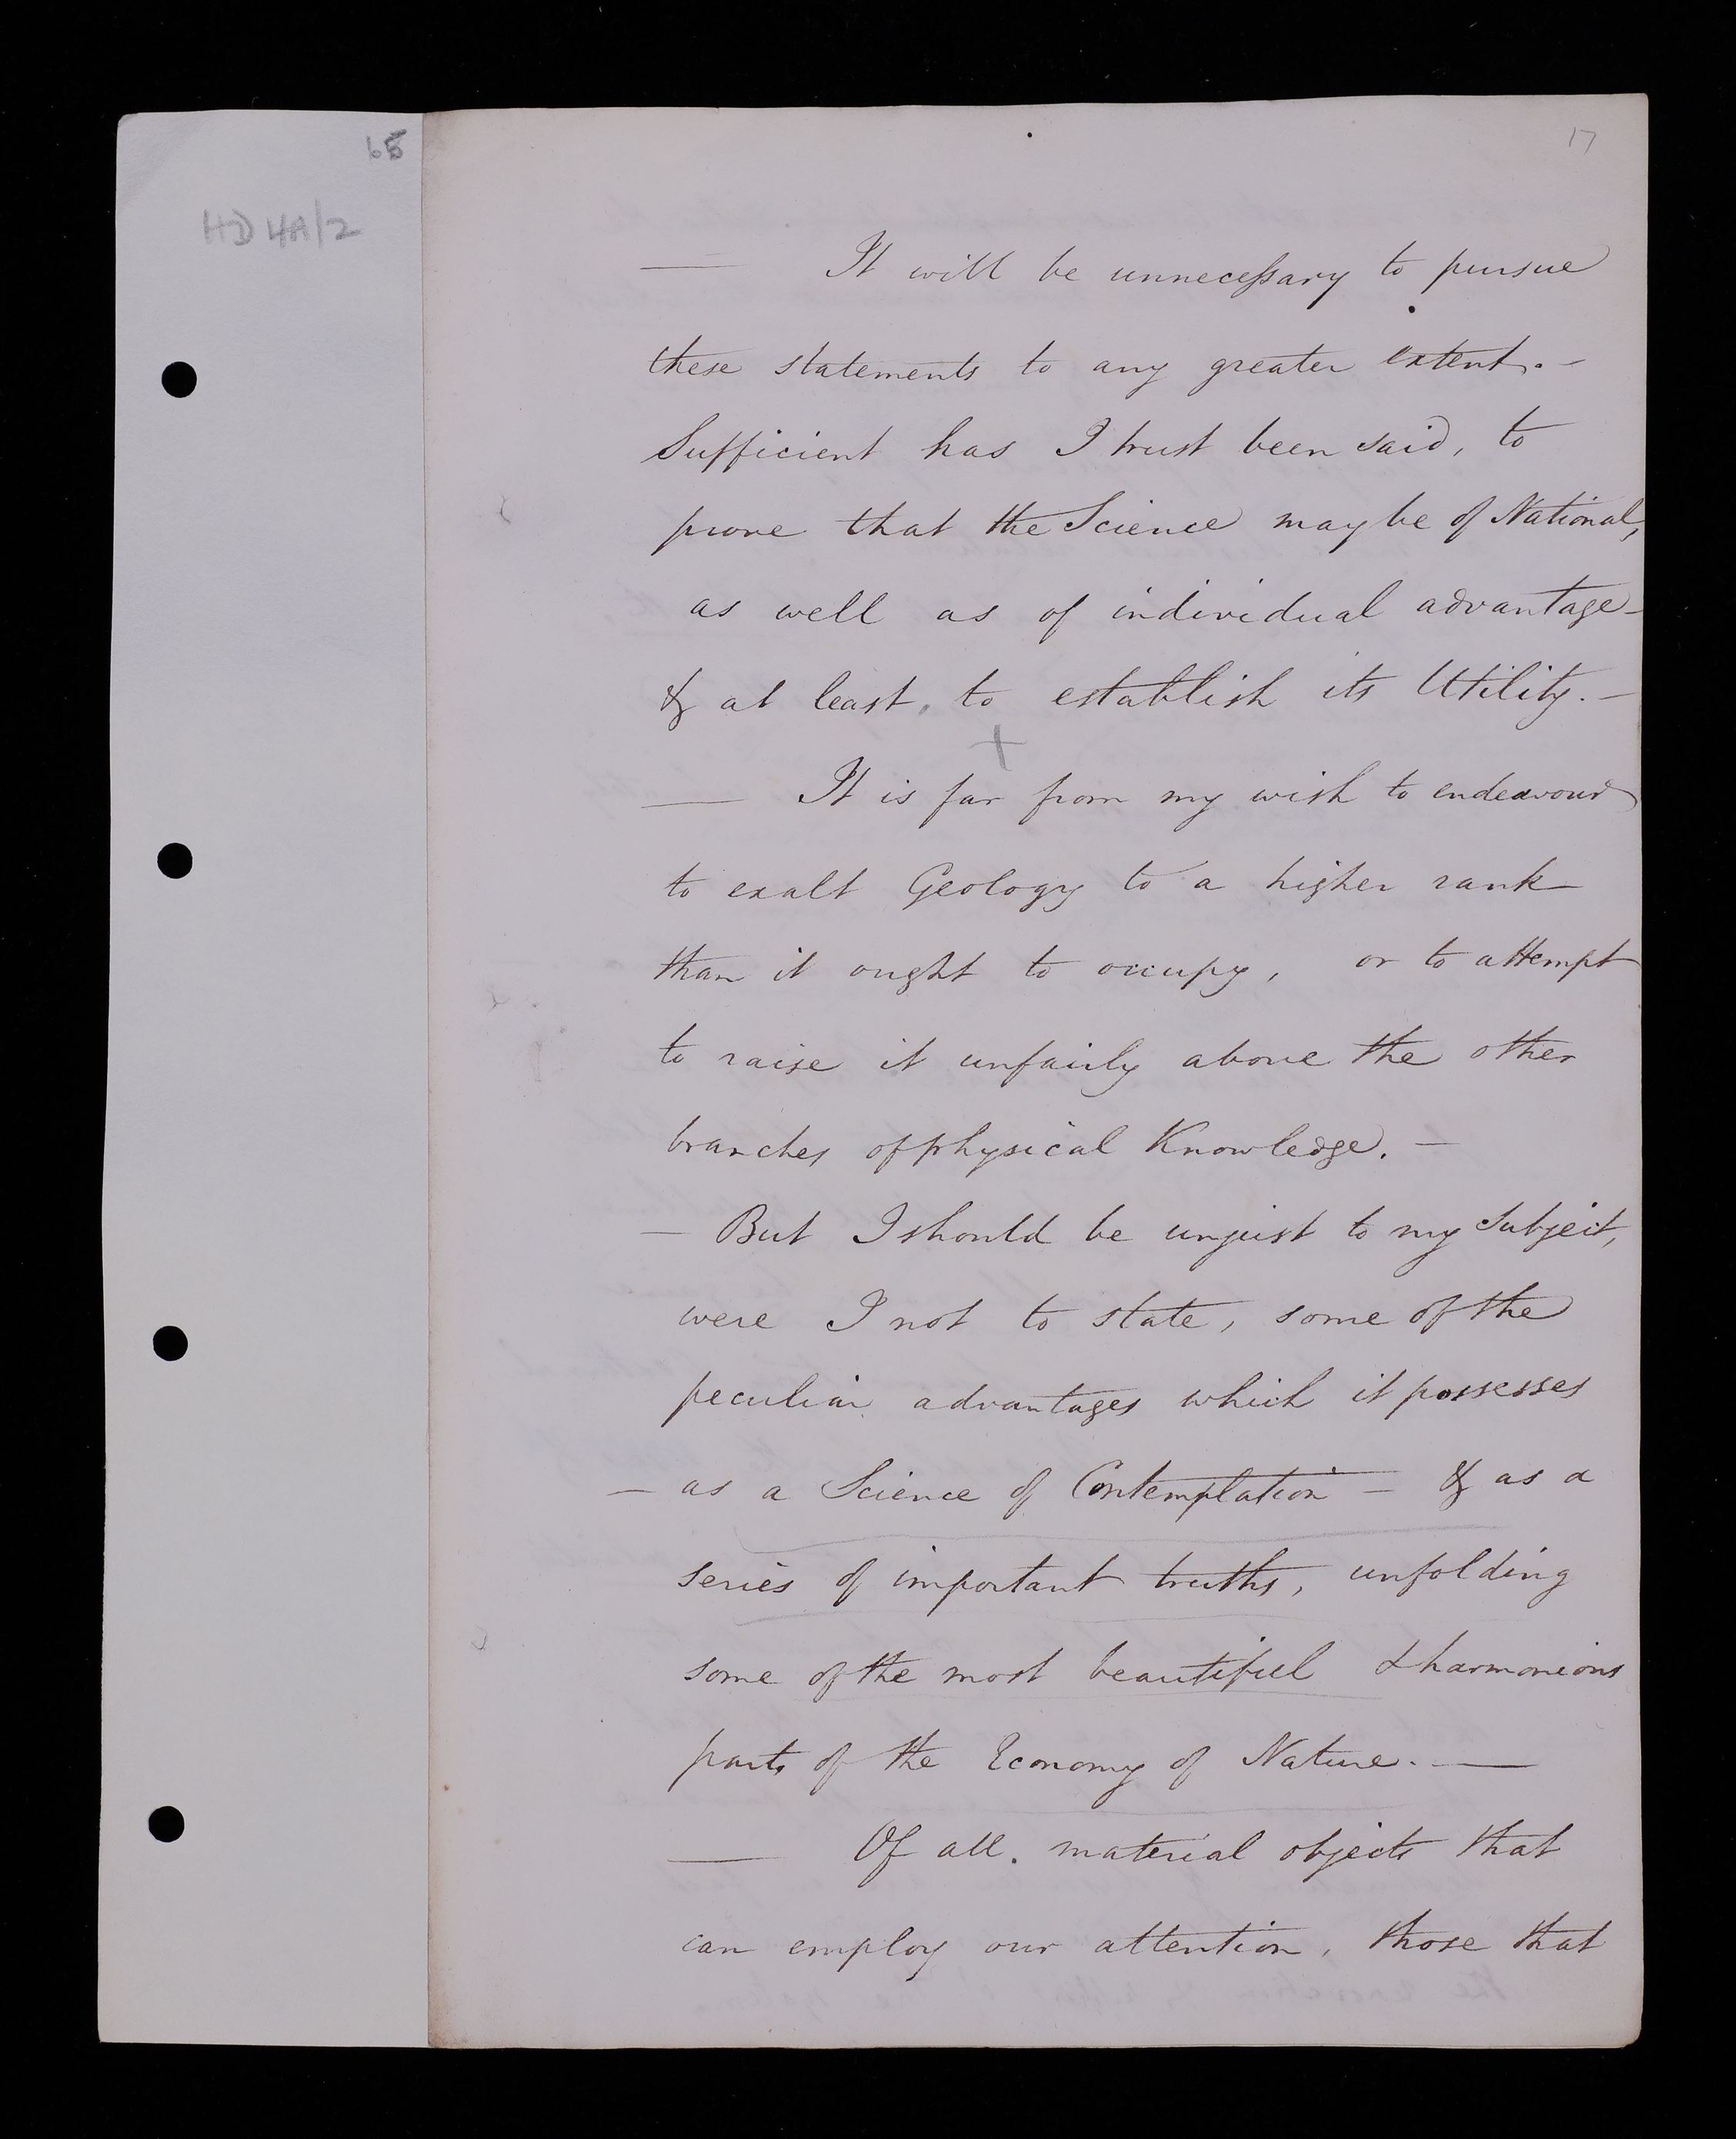 65
17
HD 4A/2
— It will be unnecessary to pursue
these statements to any greater extent. –
Sufficient has I trust been said, to
prove that the Science may be of National,
as well as of individual advantage –
& at least, to establish its Utility. –
+
— It is far from my wish to endeavour
to exalt Geology to a higher rank
than it ought to occupy, or to attempt
to raise it unfairly above the other
branches of physical Knowledge. –
– But I should be unjust to my Subject,
were I not to state, some of the
peculiar advantages which it possesses
– as a Science of Contemplation – & as a
series of important truths, unfolding
some of the most beautiful & harmonious
parts of the Economy of Nature. —
— Of all. material objects that
can employ our attention, those that